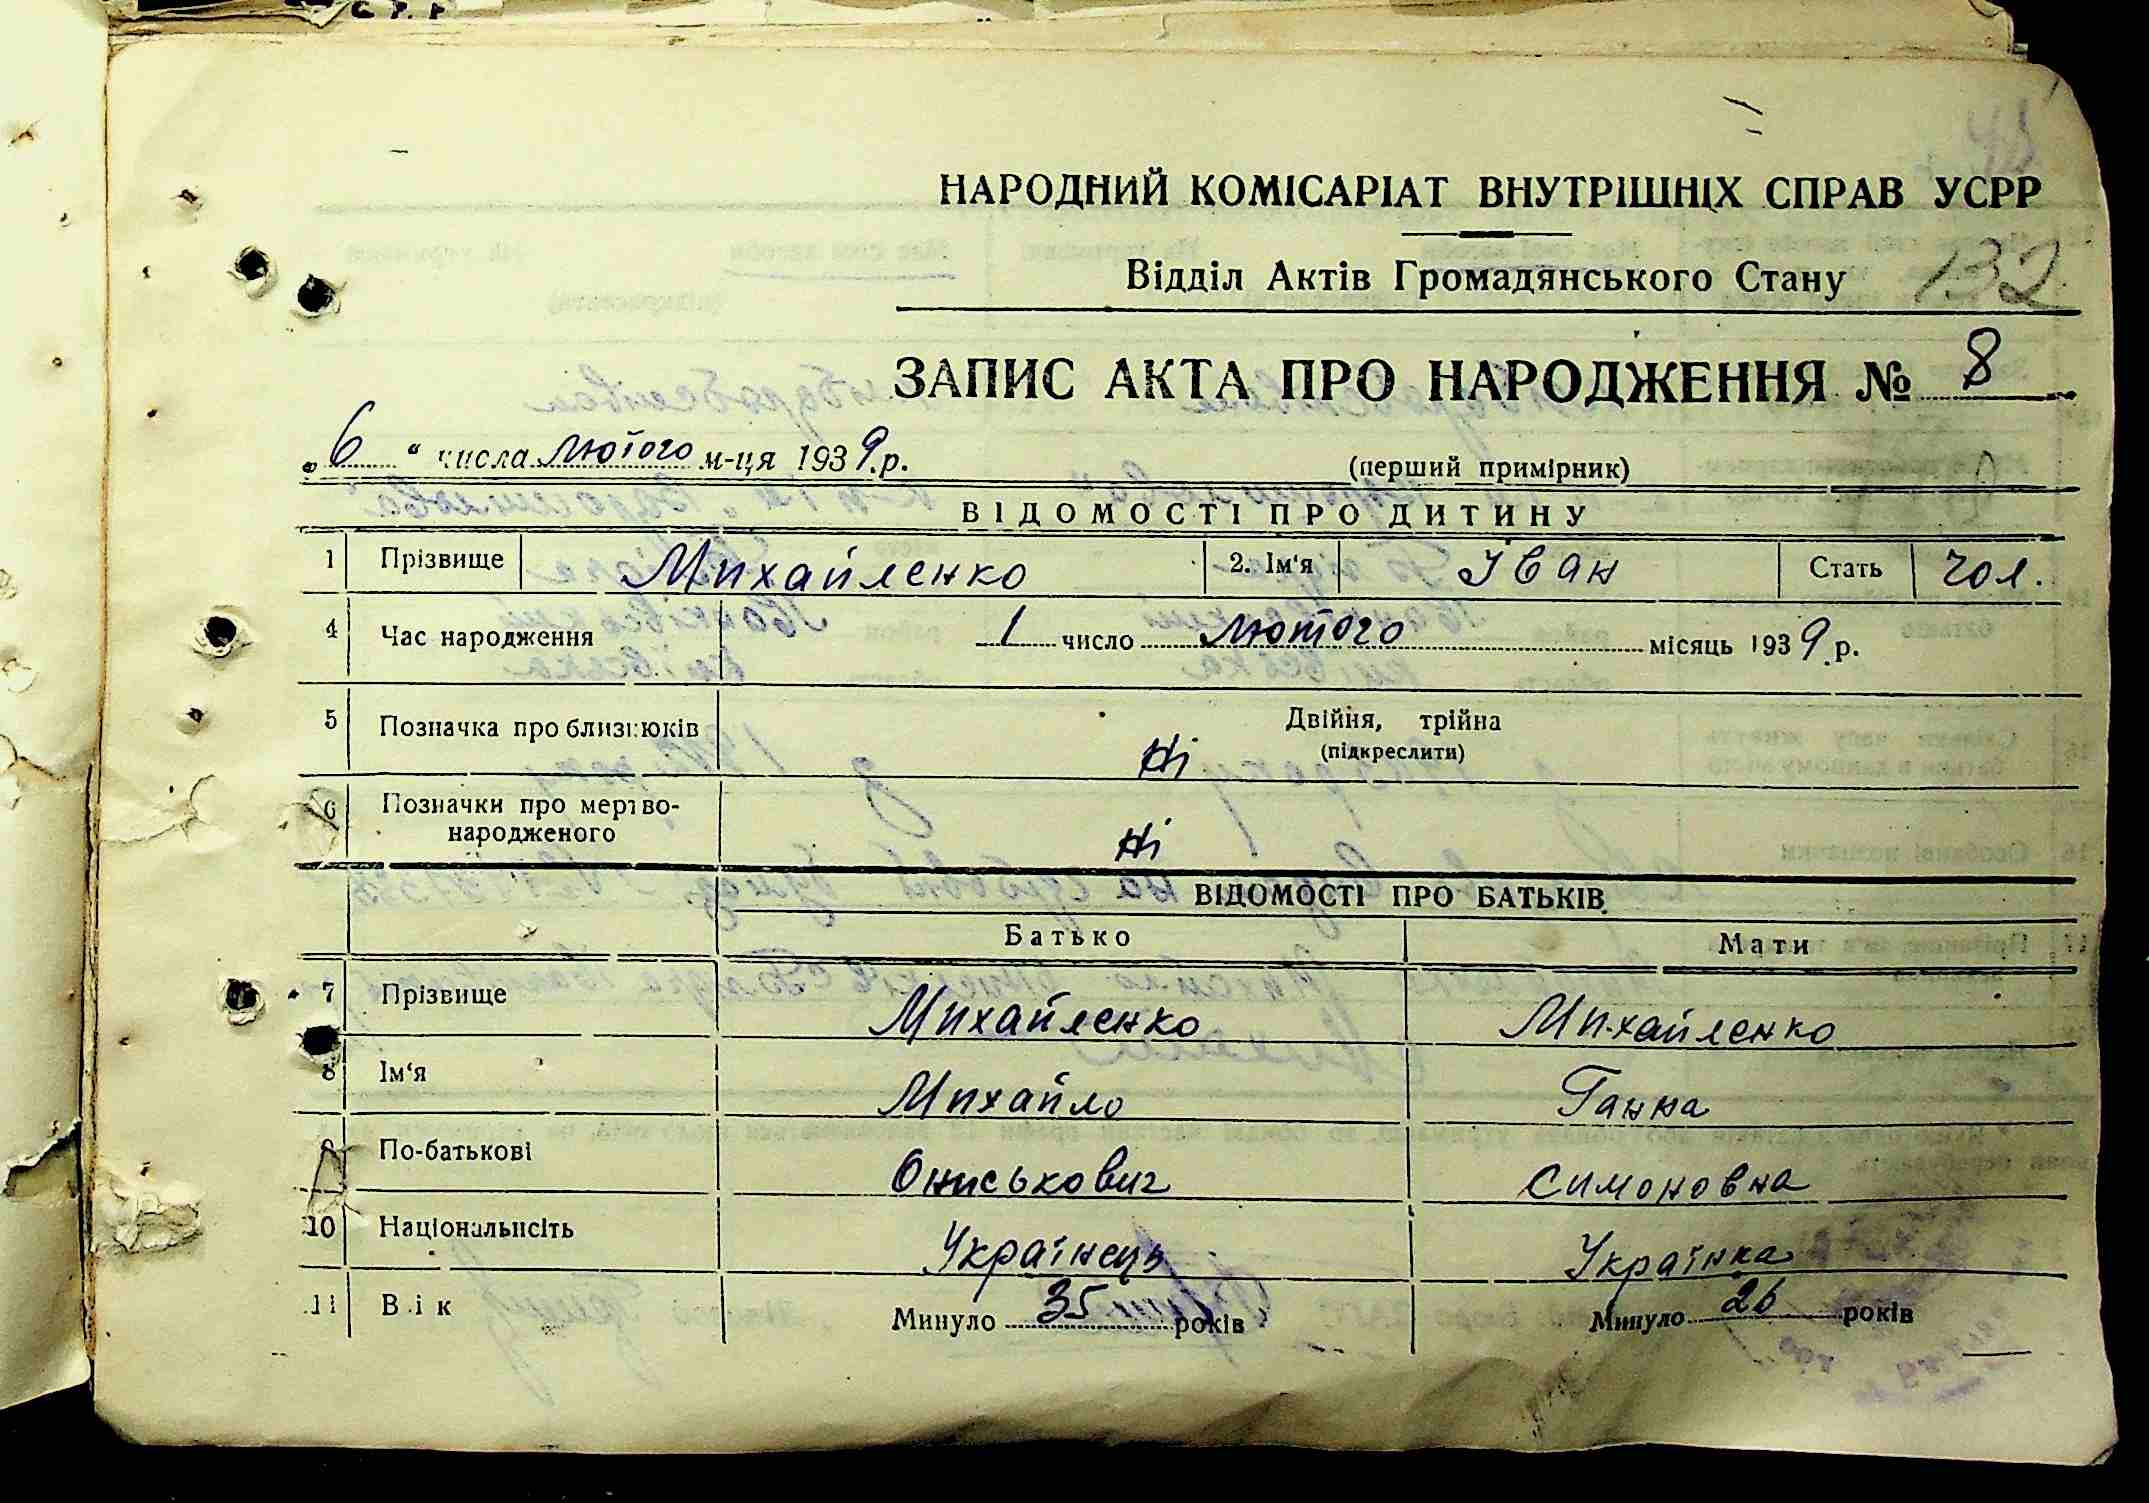 НАРОДНИЙ КОМІСАРІАТ ВНУТРІШНІХ СПРАВ УСРР
Відділ Актів Громадянського Стану 132
ЗАПИС АКТА ПРО НАРОДЖЕННЯ № 8
„6“ числа лютого м-ця 1939.р.
(перший примірник)
ВІДОМОСТІ ПРО ДИТИНУ
1 Прізвище Михайленко 2. Ім'я Іван Стать чол.
4 Час народження 1 число лютого місяць 1939.р.
5 Позначка про близнюків Двійня, трійна
(підкреслити)
Ні
6 Позначки про мертво-
народженого
Ні
ВІДОМОСТІ ПРО БАТЬКІВ
Батько Мати
7 Прізвище Михайленко Михайленко
8 Ім'я Михайло Ганна
9 По-батьковіОниськович Симоновна
10 Національнсіть Українець Українка
11 Вік Минуло 35 років Минуло 26 років